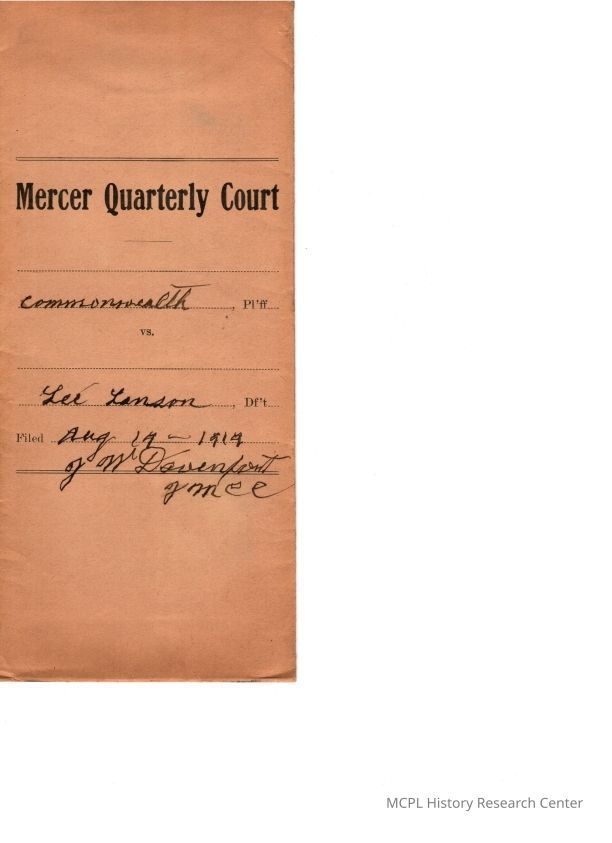 Mercer Quarterly Court
Commonwealth, Pl'ff
vs.
Lee Lanson, Df't
Filed Aug 19 - 1919
J W Davenport
J M C C
MCPL History Research Center